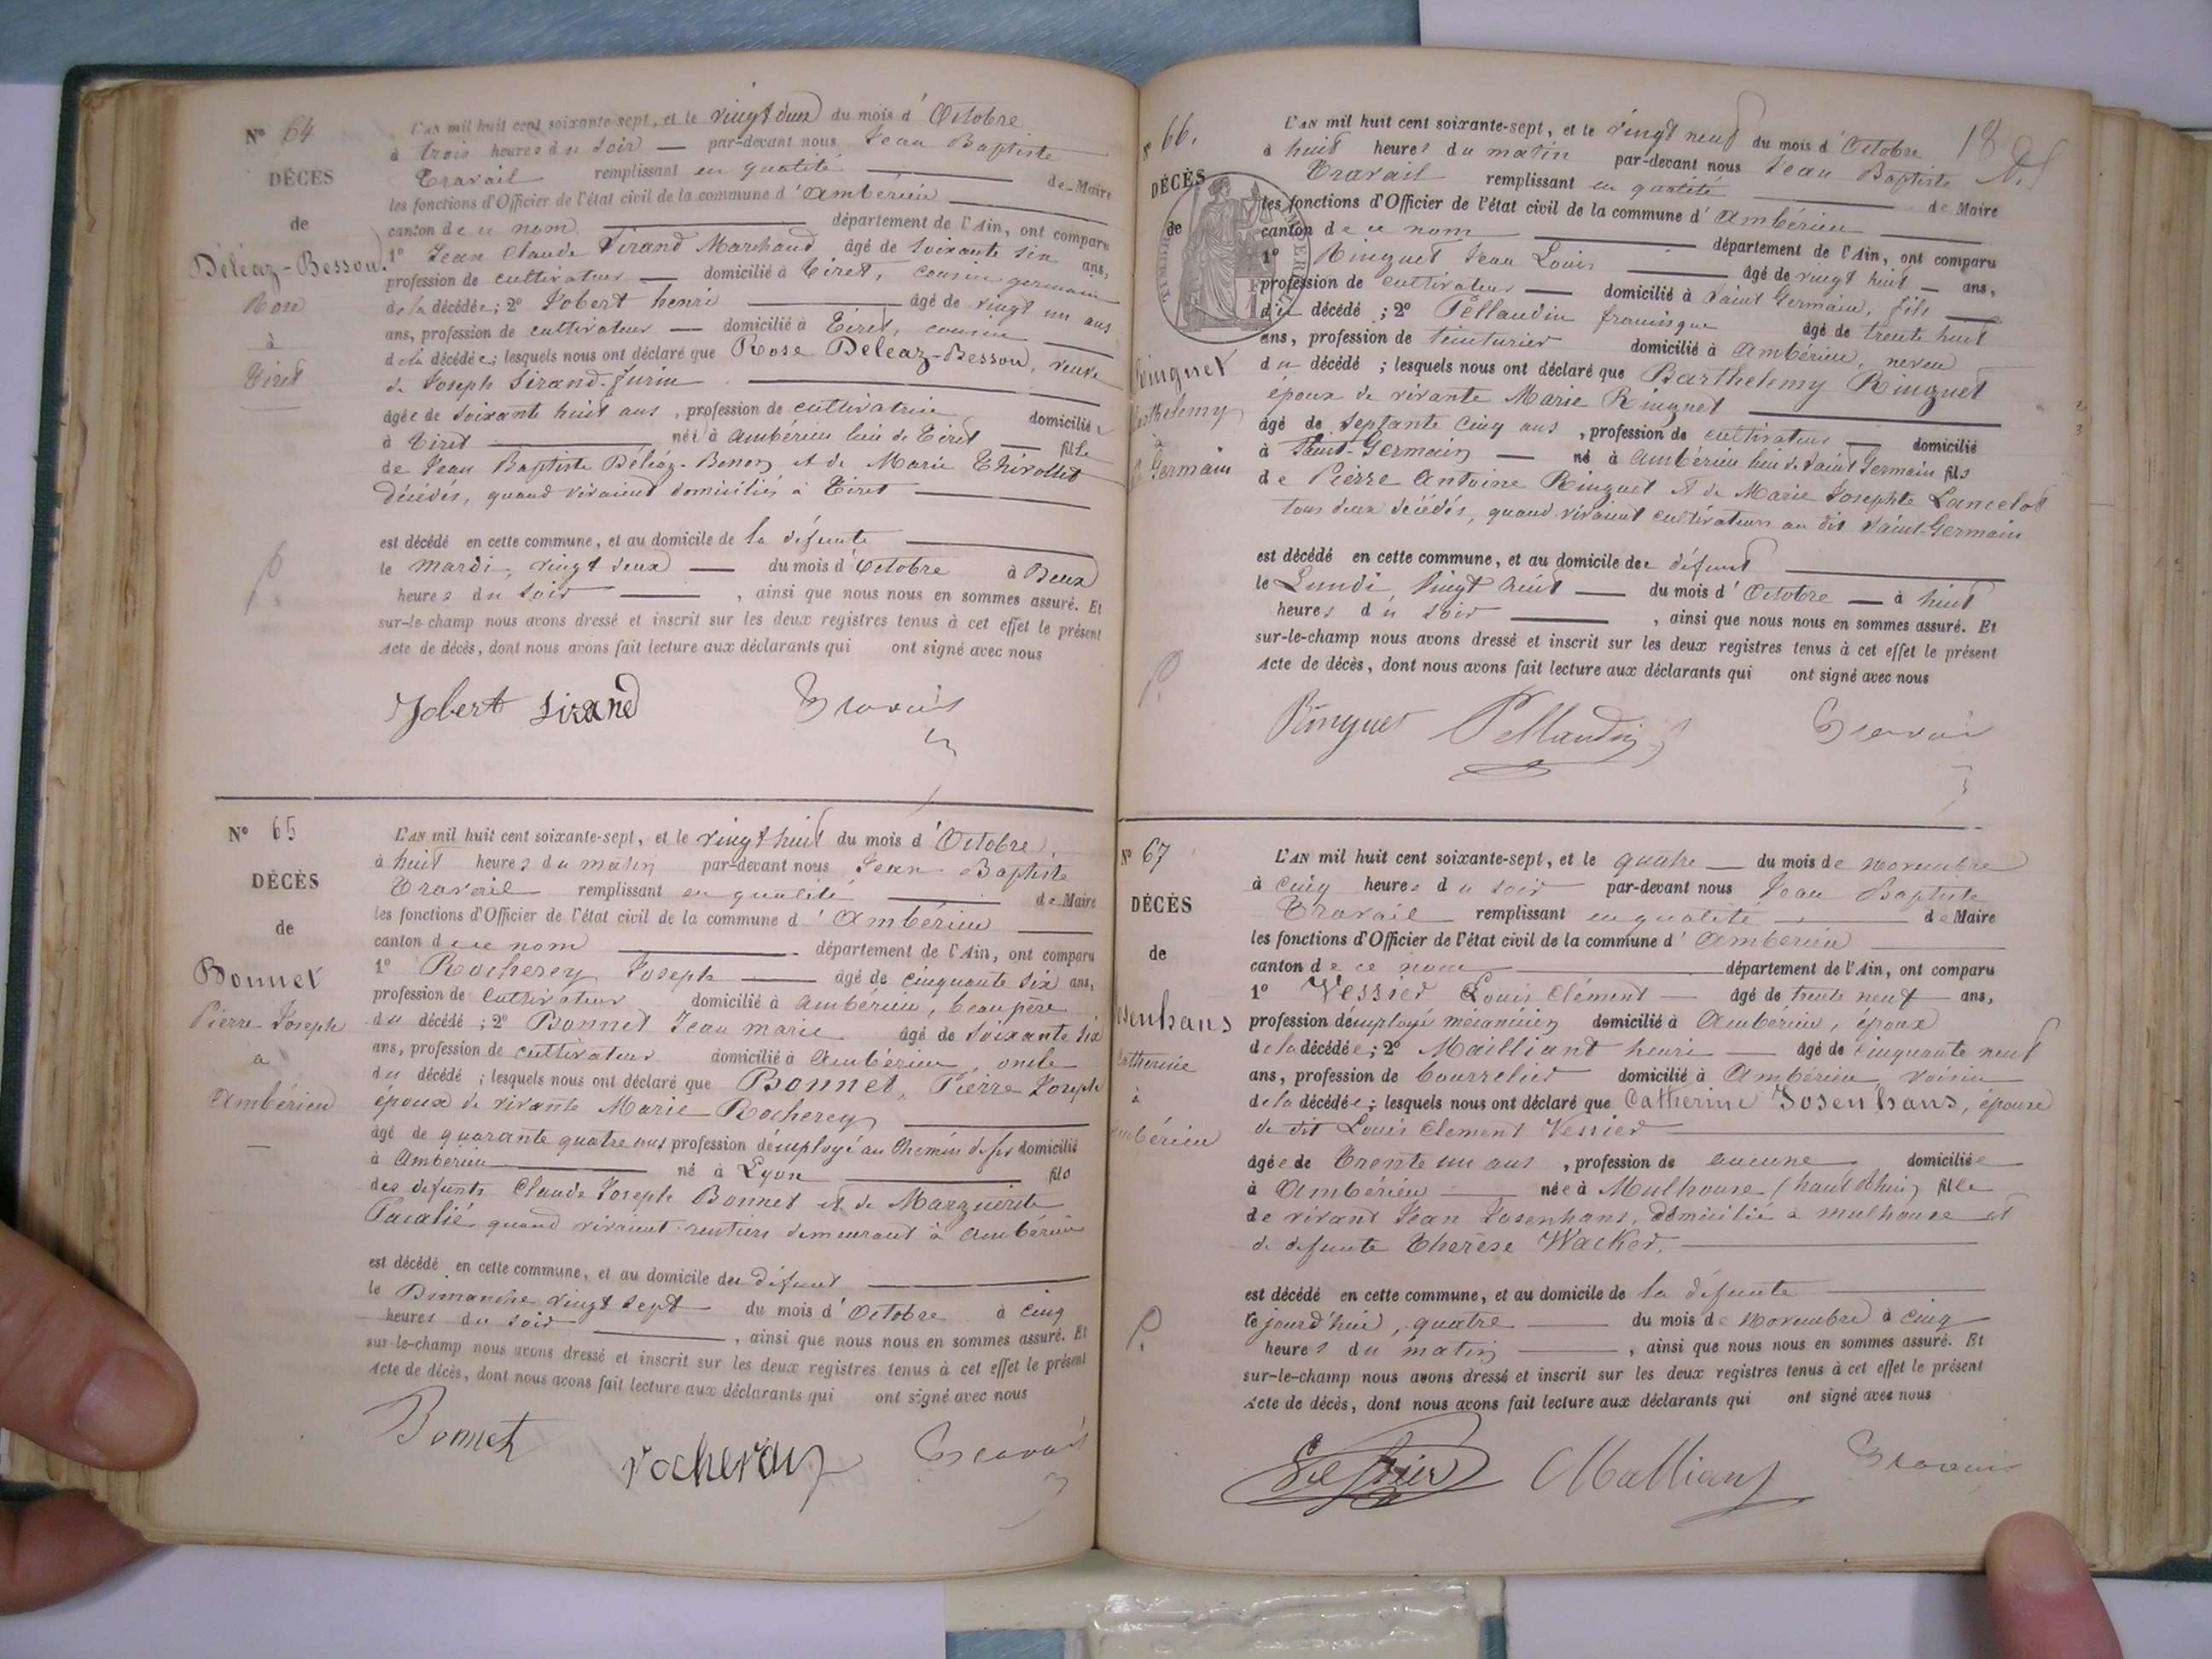 N° 64
DÉCÈS
de
Déléaz-Besson
Rose
à
Tiret
L'AN mil huit cent soixante-sept, et le vingt deux du mois d'Octobre
à trois heures du soir — par-devant nous Jean Baptiste
Travail remplissant en qualité de Maire
les fonctions d'Officier de l'état civil de la commune d'Ambérieu
canton de ce nom département de l'Ain, ont comparu
1° Jean Claude Sirand Marchand âgé de soixante six ans,
profession de cultivateur — domicilié à Tiret, cousin germain
de la décédée; 2° Jobert henri âgé de vingt un ans
ans, profession de cultivateur — domicilié à Tiret, cousin
de la décédée; lesquels nous ont déclaré que Rose Déléaz-Besson, veuve
de Joseph Sirand-Jurin
âgée de soixante huit ans, profession de cultivatrice domiciliée
à Tiret née à Ambérieu lieu de Tiret fille
de Jean Baptiste Déléaz-Besson et de Marie Thirollet
décédés, quand vivaient domiciliés à Tiret
est décédé en cette commune, et au domicile de la défunte
le mardi, vingt deux — du mois d'Octobre à Deux
heures du soir, ainsi que nous nous en sommes assuré. Et
sur-le-champ nous avons dressé et inscrit sur les deux registres tenus à cet effet le présent
Acte de décès, dont nous avons fait lecture aux déclarants qui ont signé avec nous
Jobert Sirand Travail
N° 65
DÉCÈS
de
Bonnet
Pierre Joseph
à
Ambérieu
L'AN mil huit cent soixante-sept, et le vingt huit du mois d'Octobre
à huit heures du matin par-devant nous Jean Baptiste
Travail remplissant en qualité de Maire
les fonctions d'Officier de l'état civil de la commune d'Ambérieu
canton de ce nom département de l'Ain, ont comparu
1° Rocherey Joseph — âgé de cinquante six ans,
profession de cultivateur domicilié à Ambérieu, beau père
du décédé; 2° Bonnet Jean marie âgé de soixante six
ans, profession de cultivateur domicilié à Ambérieu, oncle
du décédé; lesquels nous ont déclaré que Bonnet, Pierre Joseph
époux de vivante Marie Rocherey
âgé de quarante quatre ans profession d'employé au chemin de fer domicilié
à Ambérieu né à Lyon fils
des défunts Claude Joseph Bonnet et de Marguerite
quand vivaient rentiers demeurant à Ambérieu
est décédé en cette commune, et au domicile du défunt
le Dimanche vingt sept — du mois d'Octobre à cinq
heures du soir, ainsi que nous nous en sommes assuré. Et
sur-le-champ nous avons dressé et inscrit sur les deux registres tenus à cet effet le présent
Acte de décès, dont nous avons fait lecture aux déclarants qui ont signé avec nous
Bonnet Rocherey Travail
18
66.
DÉCÈS
de
Ringuet
Barthelemy
à
St Germain
L'AN mil huit cent soixante-sept, et le vingt neuf du mois d'Octobre
à huit heures du matin par-devant nous Jean Baptiste
Travail remplissant en qualité de Maire
les fonctions d'Officier de l'état civil de la commune d'Ambérieu
canton de ce nom département de l'Ain, ont comparu
1° Ringuet Jean Louis âgé de vingt huit — ans,
profession de cultivateur — domicilié à Saint Germain, fils
du décédé; 2° Pellaudin francisque âgé de trente huit
ans, profession de teinturier domicilié à Ambérieu, neveu
du décédé; lesquels nous ont déclaré que Barthelemy Ringuet
époux de vivante Marie Ringuet
âgé de septante cinq ans, profession de cultivateur — domicilié
à Saint-Germain — né à Ambérieu lieu de Saint Germain fils
de Pierre Antoine Ringuet et de Marie Josephte Lancelot
tous deux décédés, quand vivaient cultivateurs au dit Saint-Germain
est décédé en cette commune, et au domicile de défunt
le Lundi, vingt huit — du mois d'Octobre — à huit
heures du soir, ainsi que nous nous en sommes assuré. Et
sur-le-champ nous avons dressé et inscrit sur les deux registres tenus à cet effet le présent
Acte de décès, dont nous avons fait lecture aux déclarants qui ont signé avec nous
Ringuet Pellaudin Travail
N° 67
DÉCÈS
de
osenhans
Catherine
à
Ambérieu
L'AN mil huit cent soixante-sept, et le quatre — du mois de novembre
à cinq heures du soir par-devant nous Jean Baptiste
Travail remplissant en qualité de Maire
les fonctions d'Officier de l'état civil de la commune d'Ambérieu
canton de ce nom département de l'Ain, ont comparu
1° Vessier Louis Clément — âgé de trente neuf ans,
profession d'employé mécanicien domicilié à Ambérieu, époux
de la décédée; 2° Mailliant henri — âgé de cinquante neuf
ans, profession de bourrelier domicilié à Ambérieu voisin
de la décédée; lesquels nous ont déclaré que Catherine Josenhans, épouse
de dit Louis Clement Vessier
âgée de Trente un ans, profession de aucune domiciliée
à Ambérieu née à Mulhouse (haut Rhin) fille
de vivant Jean Josenhans, domicilié à mulhouse et
de defunte Therèse Wacker.
est décédé en cette commune, et au domicile de la défunte
le jourd'hui, quatre — du mois de novembre à cinq
heures du matin, ainsi que nous nous en sommes assuré. Et
sur-le-champ nous avons dressé et inscrit sur les deux registres tenus à cet effet le présent
Acte de décès, dont nous avons fait lecture aux déclarants qui ont signé avec nous
Vessier Malliant Travail